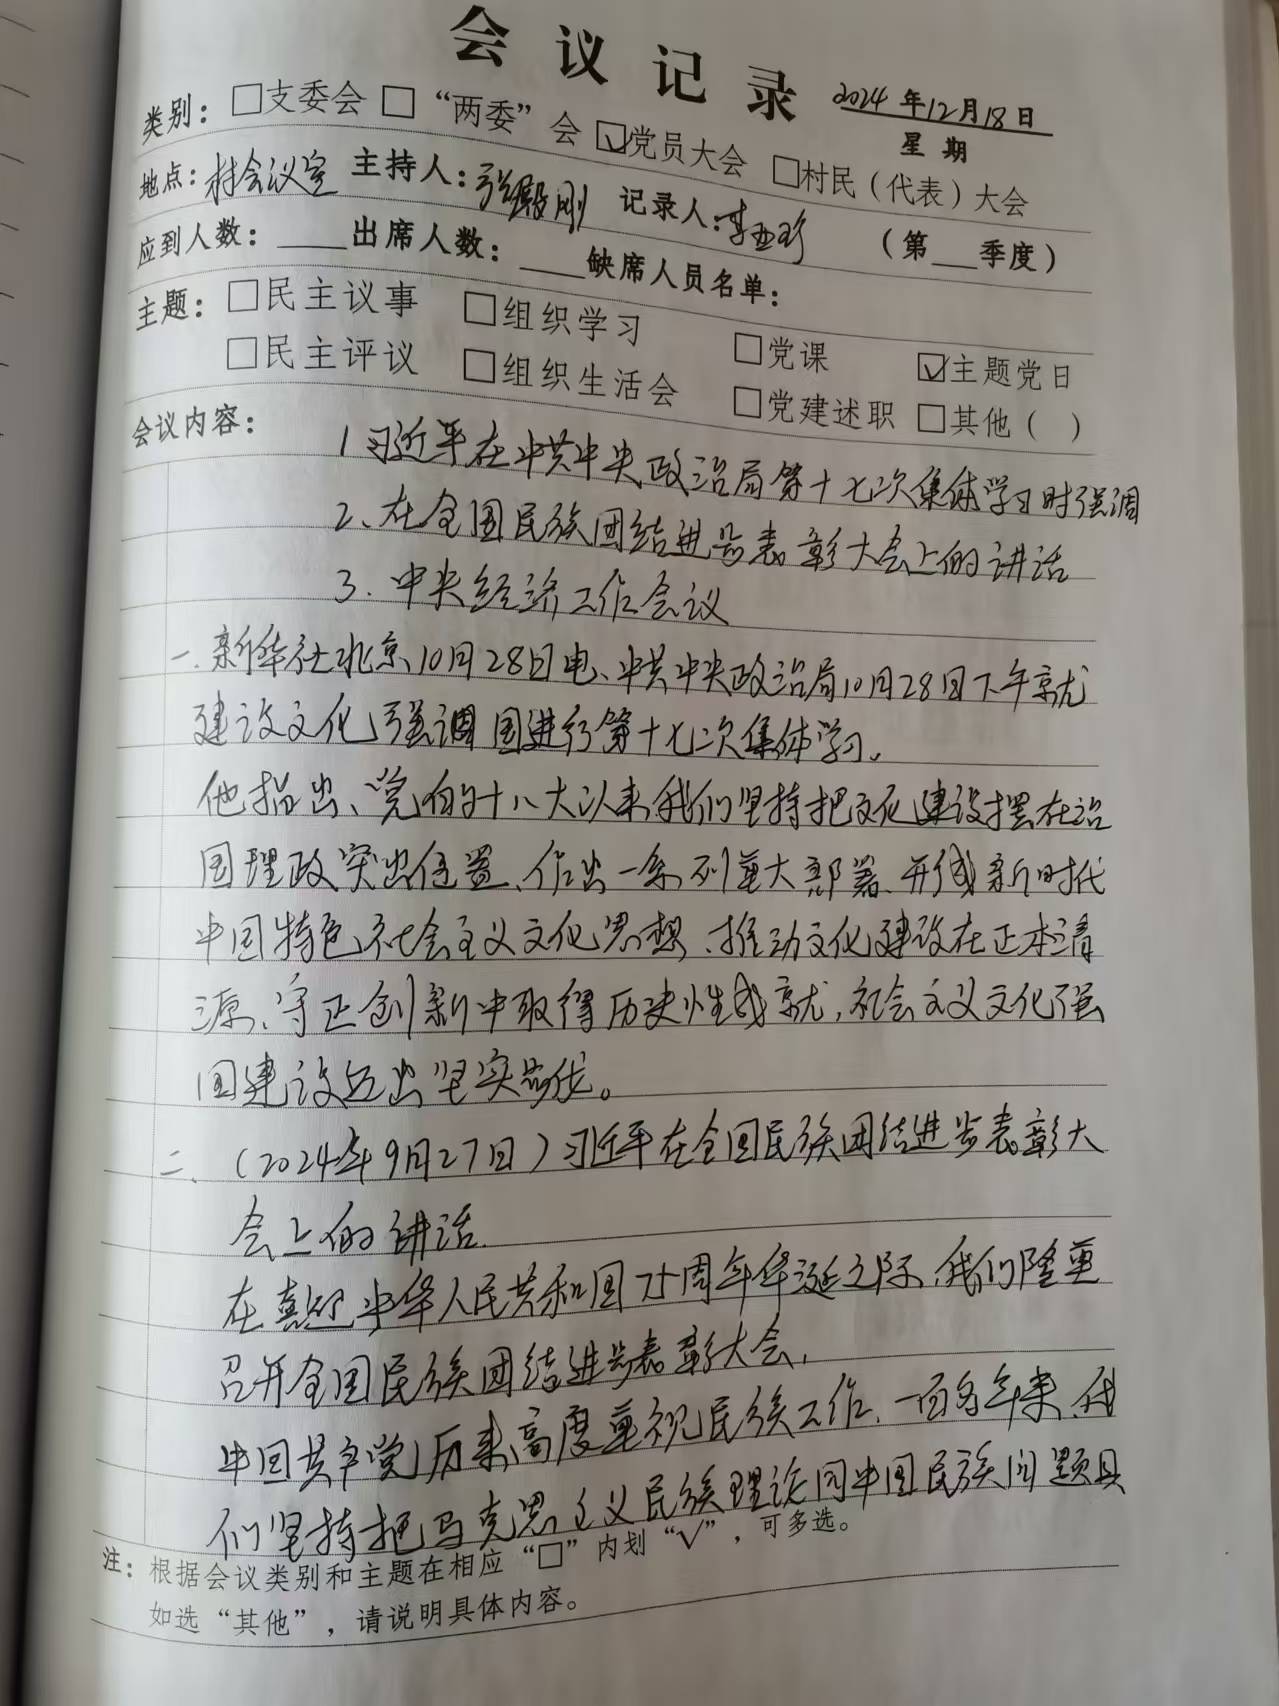 会议记录
2024年12月18日
星期
类别：□支委会 □“两委”会 ☑党员大会 □村民（代表）大会
地点：村会议室 主持人：张殿刚 记录人：李亚珍 （第___季度）
应到人数：____出席人数：____缺席人员名单：
主题：□民主议事 □组织学习 □党课 ☑主题党日
□民主评议 □组织生活会 □党建述职 □其他（ ）
会议内容：
1 习近平在中共中央政治局第十七次集体学习时强调
2、在全国民族团结进步表彰大会上的讲话
3. 中央经济工作会议
一. 新华社北京10月28日电、中共中央政治局10月28日下午就
建设文化强调国进行第十七次集体学习。
他指出、党的十八大以来我们坚持把文化建设摆在治
国理政突出位置、作出一系列重大部署、形成新时代
中国特色社会主义文化思想、推动文化建设在正本清
源、守正创新中取得历史性成就，社会主义文化强
国建设迈出坚实步伐。
二、（2024年9月27日）习近平在全国民族团结进步表彰大
会上的讲话.
在喜迎中华人民共和国75周年华诞之际、我们隆重
召开全国民族团结进步表彰大会，
中国共产党历来高度重视民族工作、一百多年来，我
们坚持把马克思主义民族理论同中国民族问题具
注：根据会议类别和主题在相应“□”内划“√”，可多选。
如选“其他”，请说明具体内容。